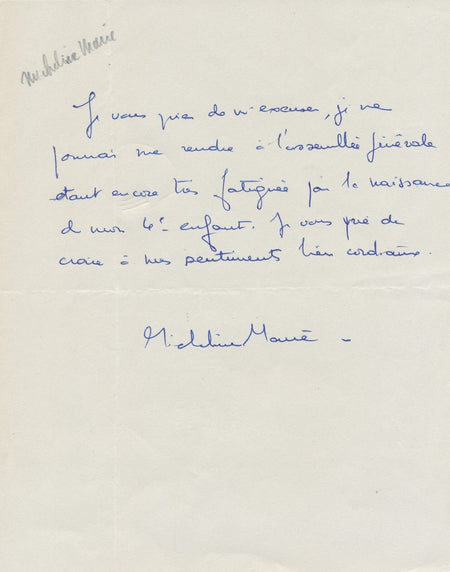 Micheline Marie
Je vous prie de m'excuser, je ne
pourrai me rendre à l'assemblée générale
étant encore très fatiguée par la naissance
d mon 4e enfant. Je vous prie de
croire à mes sentiments bien cordiaux.
Micheline Marié